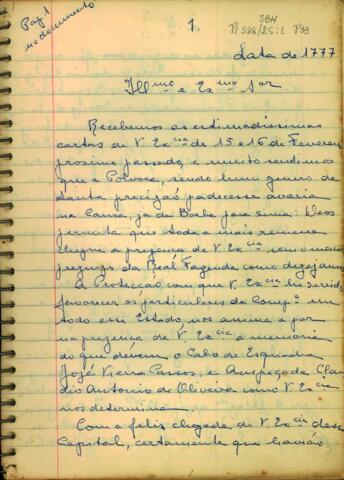 Pag. 1
no documento
1.
SBH
Pi 588/25:1 P33
Data de 1777
Ill mo e Ex mo Snr
Recebemos as estimadissimas
cartas de V. Ex cia de 15 e 16 de Fevereiro
proximo passado, e muito sentimos
que a Polvora, sendo hum genero de
tanta precizão padecesse avaria
na Canoa, ja de Barbe para sima: Deos
permita que toda a mais remessa
chegue a prezença de V. Ex cia sem o menor
prejuizo da Real Fazenda como dezejamos.
A Protecção com que V. Ex cia he servido
favorecer os particulares da Comp.ª em
todo esse Estado nos anima a por
na prezença de V. Ex cia a memoria
do que devem o Cabo de Esquadra
José Vieira e Anspeçada Clau
dio Antonio de Oliveira como V. Ex cia
nos determina.
Com a feliz chegada de V. Ex cia dessa
Capital, certamente que haviaõ